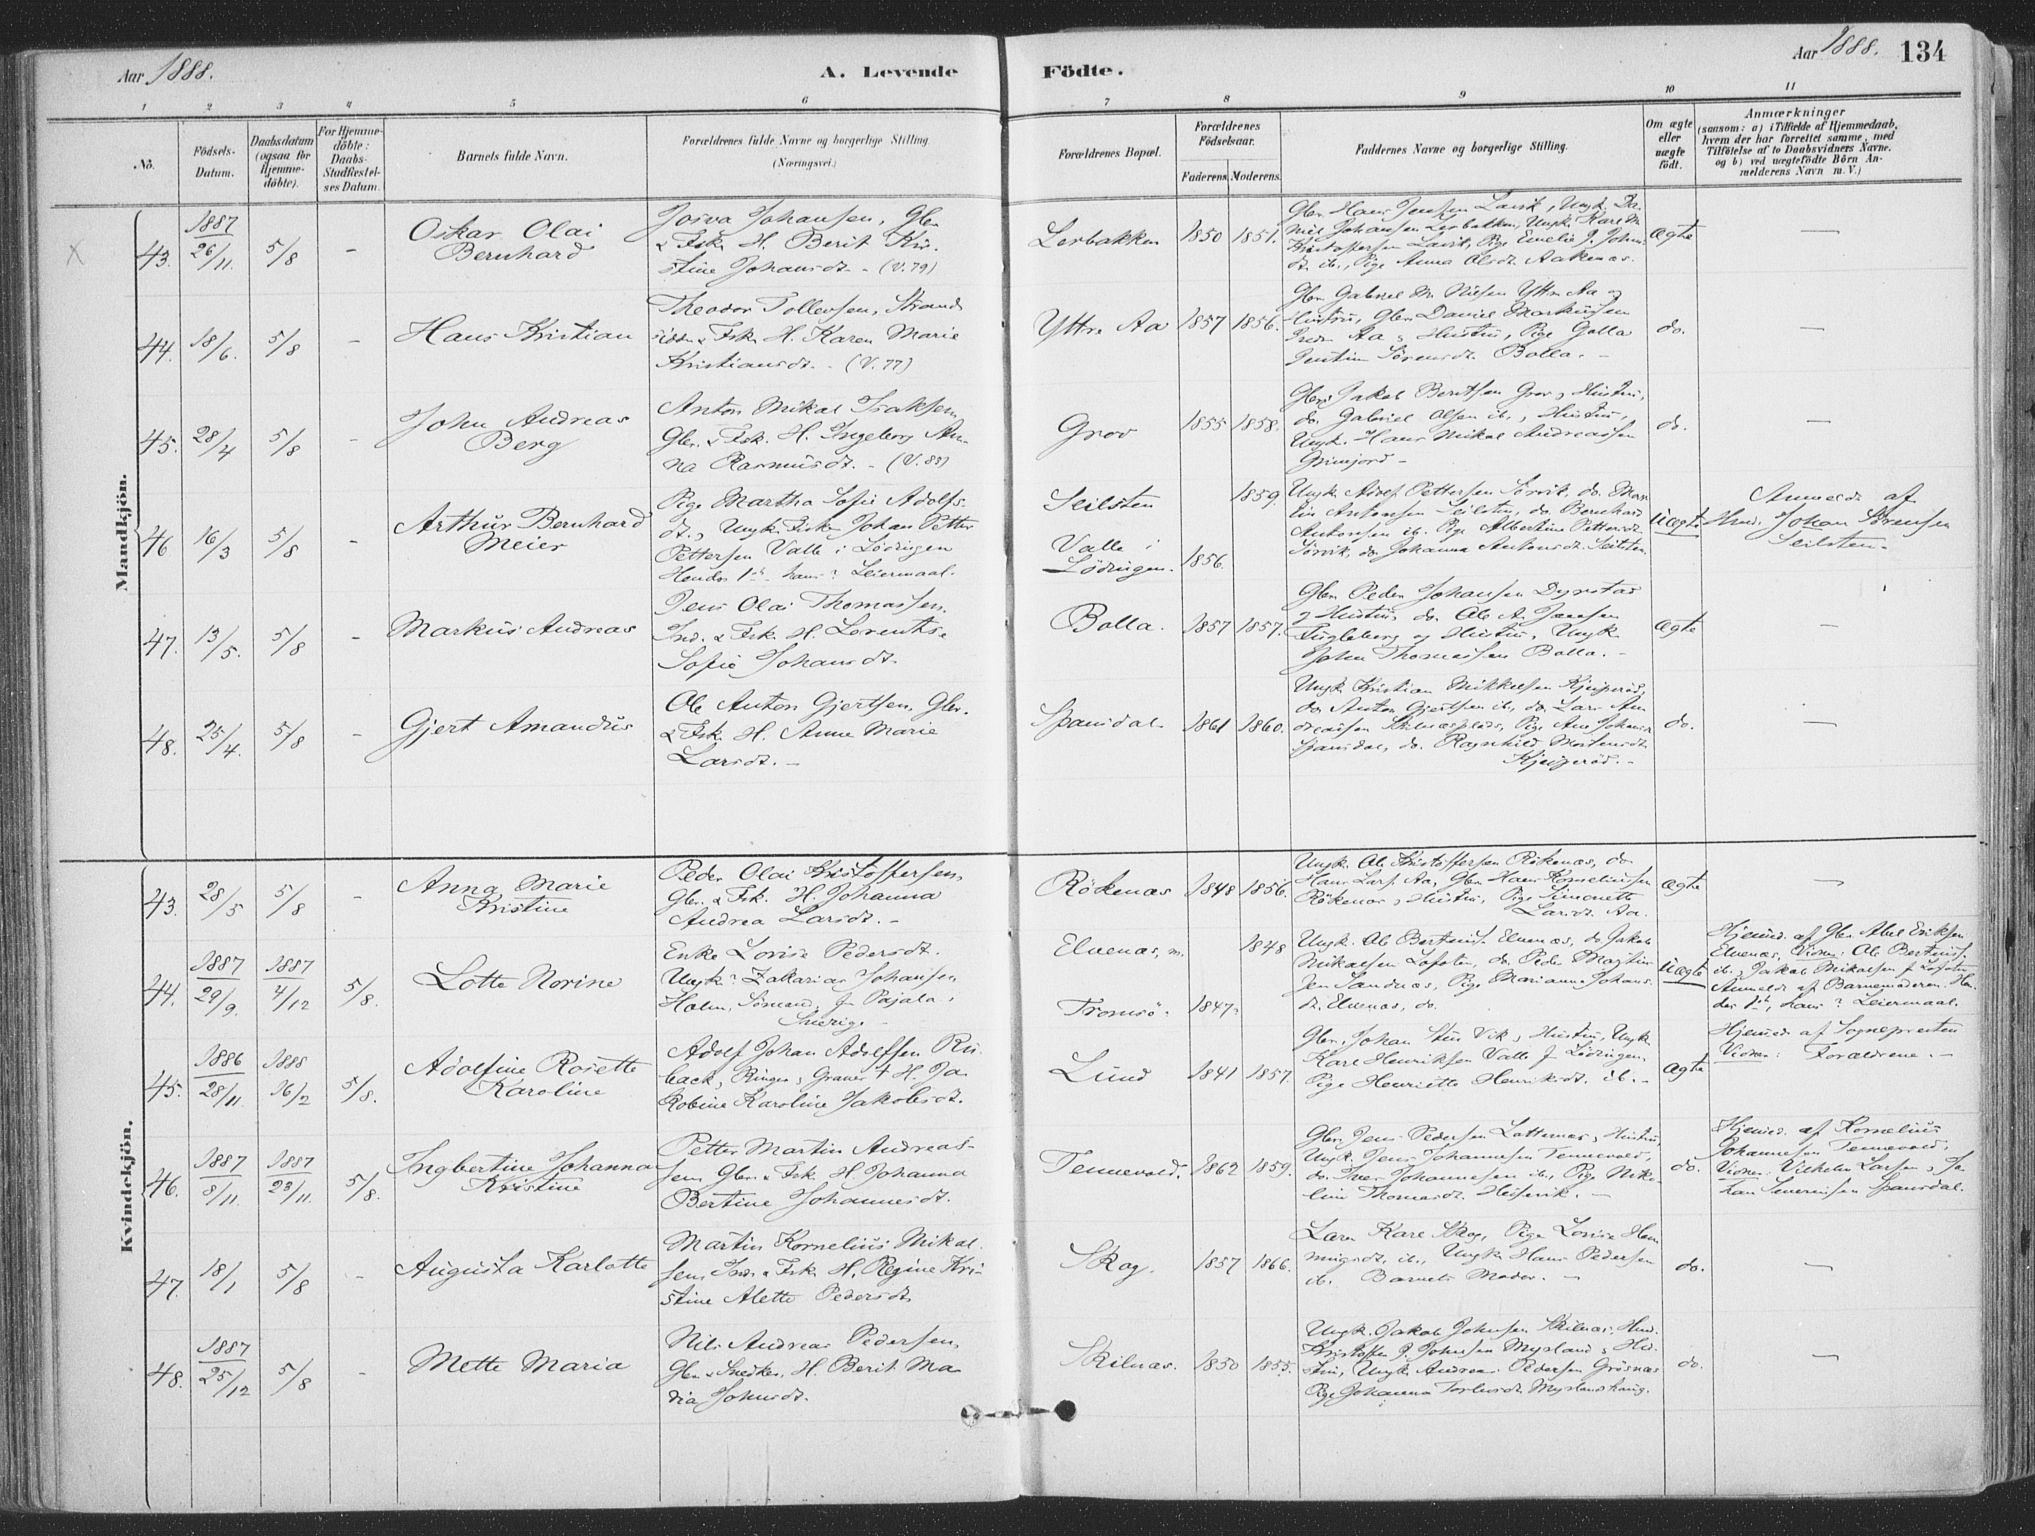 Aar 1888.
A. Levende
Födte.
Aar 1888.
134
1 2 3 4 5 6 7 8 9 10 11
No.
Födsels-
Datum.
Daabsdatum
(ogsaa for
Hjemme-
döbte).
For Hjemme-
döbte:
Daabs-
Stadfæstel-
ses Datum.
Barnets fulde Navn.
Forældrenes fulde Navne og borgerlige Stilling
(Næringsvei.)
Forældrenes Bopæl.
Forældrenes
Födselsaar.
Faderens Moderens
Faddernes Navne og borgerlige Stilling.
Om ægte
eller
uægte
födt.
Anmærkninger
(saasom: a) i Tilfælde af Hjemmedaab,
hvem der har forrettet samme, med
Tilföielse af to Daabsvidners Navne,
og b) ved uægtefödte Börn An-
melderens Navn m. V.)
Mandkjön.
X
43.
1887
26/11.
5/8
-
Oskar Olai
Bernhard
Josva Johansen, Gbr
& Fsk. H. Berit Kri-
stine Johansdt. - (V. 79)
Lerbakken
1850
1851.
Gbr. Hans Jensen Lavik, Ungk. Da-
niel Johansen Lerbakken, Ungk. Karl M.
Kristoffersen Lavik, Pige Emelie J. Johns
dt. ib., Pige Anna Olsdt. Aakenæs.
ægte
—
44.
18/6.
5/8
-
Hans Kristian
Theodor Tollevsen, Strand
sidder & Fsk. H. Karen Marie
Kristiansdt. - (V. 77)
Yttre Aa
1857
1856.
Gbr. Gabriel M. Nilsen Yttre Aa og
Hustru, Gbr. Daniel Markussen
Aa & Hustru, Pige Golla
Sörensdt. Bolla. -
do.
—
45.
28/4
5/8
-
John Andreas
Berg
Anton Mikal Isaksen,
Gbr. & Fsk. H. Ingeborg An-
na Rasmusdt. - (V. 83)
Grov
1855
1858.
Gbr. Jakob Berntsen Grov & Hustru,
do. Gabriel Olsen ib. & Hustru,
Ungk. Hans Mikal Andreassen
Grimjord -
do.
—
46
16/3
5/8
-
Arthur Bernhard
Meier
Pige Martha Sofie Adolfs-
dt., Ungk. Fisker Johan Petter
Pettersen Valle i Lödingen
Hendes 1ste hans ? Leiermaal.
Seilsten
Valle i
Lödingen.
1856.
1859.
Ungk. Adolf Pettersen Sörvik, do. Mar-
tin Antonsen Seilsten, do. Bernhard
Antonsen ib. Pige Albertine Pettersdt.
Sörvik, do. Johanna Antonsdt. Seilsten.
Uægte
Anmeldt af
Hmd. Johan Sörensen
Seilsten. -
47.
13/5.
5/8
-
Markus Andreas
Jens Olai Thomassen
Ind. & Fsk. H. Lorentse
Sofie Johansdt.
Bolla.
1857
1857.
Gbr. Peder Johansen Dyrstad
og Hustru, do. Ole A. Jensen
Fugleberg og Hustru, Ungk.
John Thomassen Bolla. -
ægte
—
48.
25/4.
5/8
-
Gjert Amandus
Ole Anton Gjertsen, Gbr.
& Fsk. H. Anne Marie
Larsdt. -
Spansdal
1861
1860.
Ungk. Kristian Mikkelsen Kjeiprød,
do. Anton Gjertsen ib., do. Lars An-
dreassen Skilnæsplads, Pige Ane Johansdt.
Spansdal, do. Ragnhild Mortensdt.
Kjeiprød. -
do.
—
Kvindekjön.
43.
28/5
5/8
-
Anna Marie
Kristine
Peder Olai Kristoffersen,
Gbr. & Fsk. H. Johanna
Andrea Larsdt. -
Rökenæs
1848
1856.
Ungk. Ole Kristoffersen Rökenæs, do
Hans Lars. Aa, Gbr. Hans Korneliussen
Rökenæs & Hustru, Pige Simonette
Larsdt. Aa.
ægte
—
44.
1887
29/9.
1887
4/12
5/8.
Lotte Norine
Enke Lovise Pedersdt.
Ungk? Zakarias Johansen
Holm, Sömand, fr Pajala i
Sverige -
Elvenæs, m.
Tromsö.
1847.
1848
Ungk. Ole Bertheus. Elvenæs, do. Jakob
Mikalsen Lofoten, do. Peder Martin
Jen Sandnæs, Pige Marianne Johans-
dt. Elvenæs, do.
Uægte
Hjemd. af Gbr. Abel Eriksen
Elvenæs, Vidner: Ole Bertheus.
ib., Jakob Mikalsen f. Lofoten
Anmeldt af Barnemoderen. Hen-
des 1ste, hans ? Leiermaal.
45.
1886
28/11.
1888
16/2
5/8.
Adolfine Rosette
Karoline
Adolf Johan Adolfsen Ru-
back, Ringer & Graver † H. Ja-
kobine Karoline Jakobsdt.
Lund
1841
1857.
Gbr. Johan Hein Vik & Hustru, Ungk.
Karl Henriksen Valle f Lödingen,
Pige Henriette Henriksdt. ib. -
ægte
Hjemd. af Sognepresten
Vidner: Forældrene. -
46.
1887
8/11.
1887
23/11.
5/8.
Ingbertine Johanna
Kristine
Petter Martin Andreas-
sen, Gbr. & Fsk. H. Johanna
Bertine Johannesdt.
Tennevold.
1862
1859.
Gbr. Jens Pedersen Lotternæs & Hustru,
Ungk. Jens Johannesen Tennevold,
do. Iver Johannesen ib., Pige Niko-
line Thomasdt. Hesjevik. -
do.
Hjemd. af Kornelius
Johannesen Tennevold,
Vidner: Vilhelm Larsen & Jo-
han Severinsen Spansdal.
47.
18/1
5/8
-
Augusta Karlotte
Martin Kornelius Mikal-
sen, Ind. & Fsk. H. Regine Kri-
stine Alette Pedersdt.
Skog.
1857
1866.
Lærer Karl Skog, Pige Lovise Hem-
mingsdt. ib., Ungk. Hans Pedersen
ib. Barnets Moder. -
do.
—
48.
1887
25/12
5/8
Mette Maria
Nils Andreas Pedersen,
Gbr. & Snedker, H. Berit Ma-
ria Johnsdt.
Skilnæs.
1850
1855.
Ungk. Jakob Johnsen Skilnæs, Hmd.
Kristoffer J. Johnsen Myrland & Hu-
stru, Ungk. Andreas Pedersen Grösnæs
Pige Johanna Torlevsdt. Myrlandshaug.
do.
—